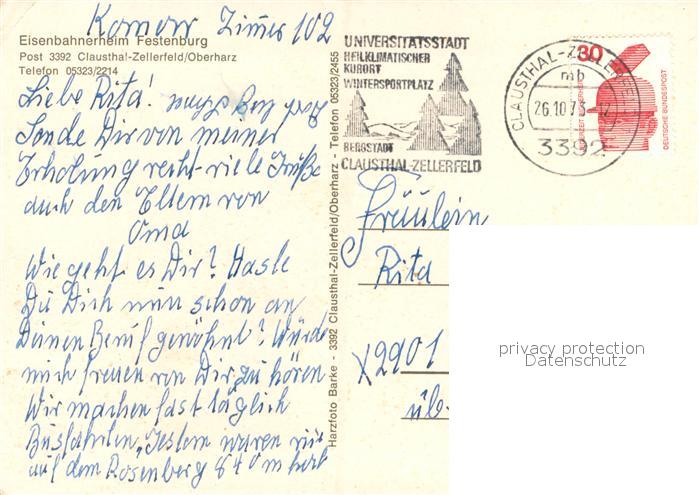 Komow Zimer 102
Eisenbahnerheim Festenburg
Post 3392 Clausthal-Zellerfeld/Oberharz
Telefon 05323/2214
Liebe Rita!
Sende Dir von meiner
Erholung recht viele Grüße
auch den Eltern von
Oma
Wie geht es Dir? Hasle
Du Dich nun schon an
Deinen Beruf genöhnt? Würde
mich freuen von Dir zu hören
Wir machen fast täglich
Busfahrten, Gestern waren wir
auf dem Rosenberg 840 m hort
Harzfoto Barke - 3392 Clausthal-Zellerfeld/Oberharz - Telefon 05323/2455
UNIVERSITÄTSSTADT
HEILKLIMATISCHER
KURORT
WINTERSPORTPLATZ
BERGSTADT
CLAUSTHAL-ZELLERFELD
CLAUSTHAL-ZELLERFE
mb
26.10.73.-12
3392
30
DEUTSCHE BUNDESPOST
Fräulein
Rita
X2901
üb
privacy protection
Datenschutz